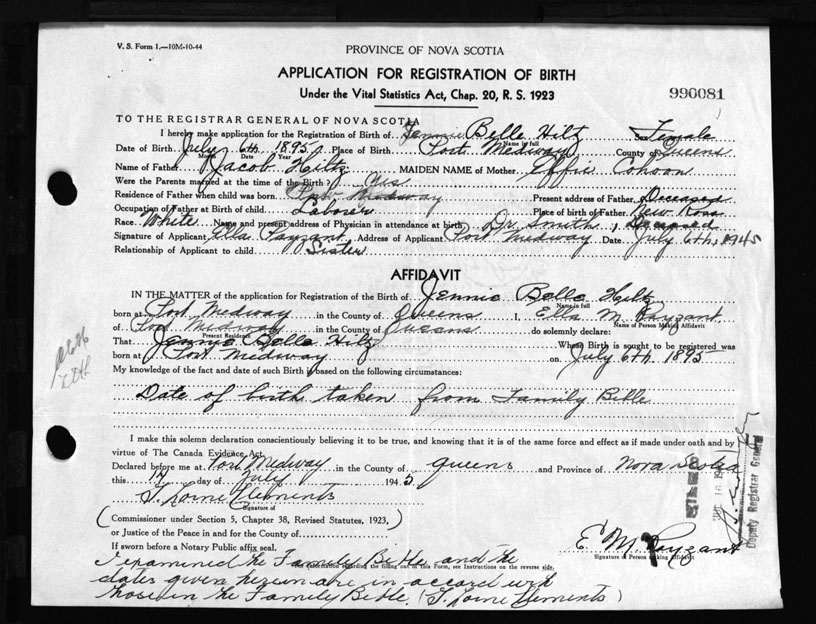 V. S. Form 1.—10M-10-44
PROVINCE OF NOVA SCOTIA
APPLICATION FOR REGISTRATION OF BIRTH
Under the Vital Statistics Act, Chap. 20, R. S. 1923
990081
TO THE REGISTRAR GENERAL OF NOVA SCOTIA
I hereby make application for the Registration of Birth of Jennie Belle Hiltz Sex Female
Name in full
Date of Birth July 6th 1895 Place of Birth Port Medway County of Queens
Month Date Year
Name of Father Jacob Hiltz MAIDEN NAME of Mother Effie Cohoon
Were the Parents married at the time of the Birth? Yes
Residence of Father when child was born Port Medway Present address of Father Deceased
Occupation of Father at Birth of child Laborer Place of birth of Father New Ross
Race White Name and present address of Physician in attendance at birth Dr. Smith, Deceased
Signature of Applicant Ella Payzant Address of Applicant Port Medway Date July 6th, 1945
Relationship of Applicant to child Sister
AFFIDAVIT
IN THE MATTER of the application for Registration of the Birth of Jennie Belle Hiltz
Name in full
born at Port Medway in the County of Queens I, Ella M. Payzant
Name of Person Making Affidavit
of Port Medway in the County of Queens do solemnly declare:
Present Residence
That Jennie Belle Hiltz Whose Birth is sought to be registered was
born at Port Medway on July 6th 1895
My knowledge of the fact and date of such Birth is based on the following circumstances:
Date of birth taken from Family Bible
I make this solemn declaration conscientiously believing it to be true, and knowing that it is of the same force and effect as if made under oath and by
virtue of The Canada Evidence Act.
Declared before me at Port Medway in the County of Queens and Province of Nova Scotia
this 14 day of July 1945
T. Lorne Clements
Signature of
(Commissioner under Section 5, Chapter 38, Revised Statutes, 1923,)
or Justice of the Peace in and for the County of
If sworn before a Notary Public affix seal.
E. M. Payzant
Signature of Person Making Affidavit
regarding the filling out of this Form, see Instructions on the reverse side.
I examined the Family Bible and the
dates given herein are in accord with
those in the Family Bible. (T. Lorne Clements)
FILED
16
Deputy Registrar General